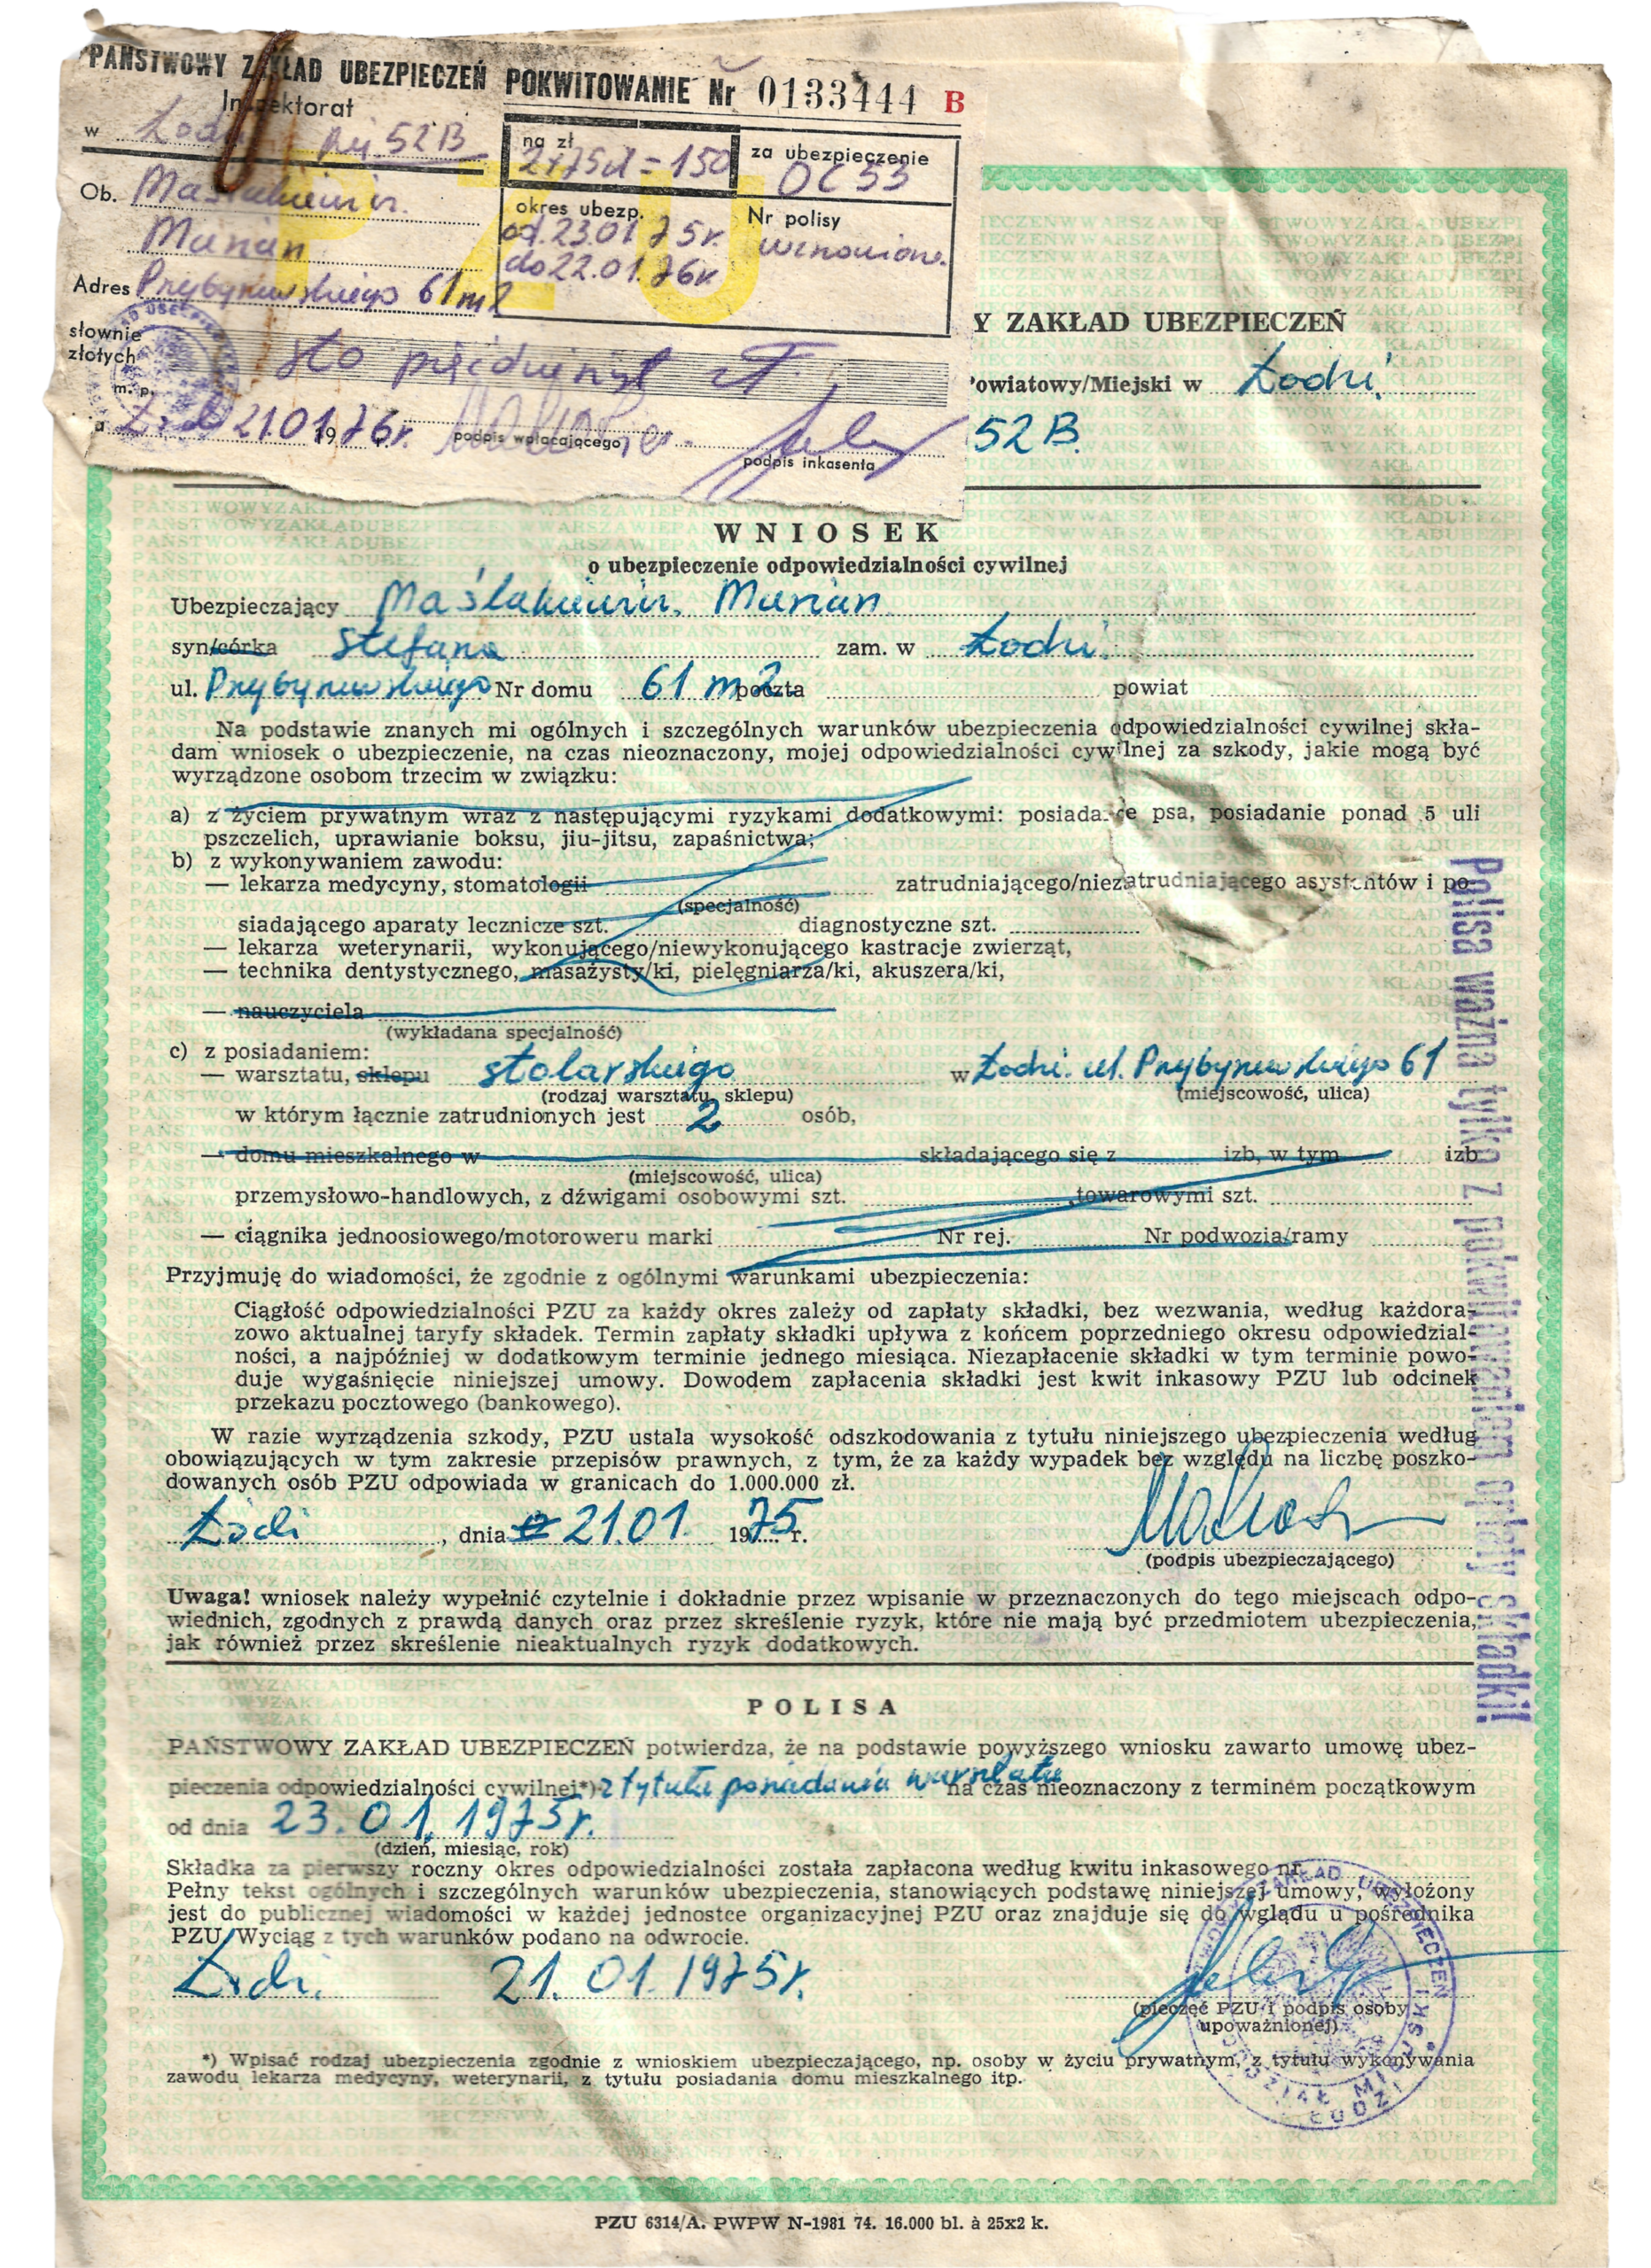 PAŃSTWOWY ZAKŁAD UBEZPIECZEŃ POKWITOWANIE Nr 0133444 B
Inspektorat
w Łodzi 52B
na zł 2x75zł = 150
za ubezpieczenie OC 53
Ob. Maślakiewicz
Marian
okres ubezp.
od 23.01.75r.
do 22.01.76r.
Nr polisy
wznowione
Adres Przybyszewskiego 61 m 2
PZU
słownie
złotych
sto pięćdziesiąt zł
m. p.
21.01 1976r.
podpis wpłacającego
podpis inkasenta
Y ZAKŁAD UBEZPIECZEŃ
owiatowy/Miejski w Łodzi
52B.
WNIOSEK
o ubezpieczenie odpowiedzialności cywilnej
Ubezpieczający Maślakiewicz Marian
syn/córka Stefana zam. w Łodzi
ul. Przybyszewskiego Nr domu 61 m 2 poczta powiat
Na podstawie znanych mi ogólnych i szczególnych warunków ubezpieczenia odpowiedzialności cywilnej skła-
dam wniosek o ubezpieczenie, na czas nieoznaczony, mojej odpowiedzialności cywilnej za szkody, jakie mogą być
wyrządzone osobom trzecim w związku:
a) z życiem prywatnym wraz z następującymi ryzykami dodatkowymi: posiadanie psa, posiadanie ponad 5 uli
pszczelich, uprawianie boksu, jiu-jitsu, zapaśnictwa;
b) z wykonywaniem zawodu:
— lekarza medycyny, stomatologii zatrudniającego/niezatrudniającego asystentów i po-
(specjalność)
siadającego aparaty lecznicze szt. diagnostyczne szt.
— lekarza weterynarii, wykonującego/niewykonującego kastracje zwierząt,
— technika dentystycznego, masażysty/ki, pielęgniarza/ki, akuszera/ki,
— nauczyciela
(wykładana specjalność)
c) z posiadaniem:
— warsztatu, sklepu stolarskiego w Łodzi ul. Przybyszewskiego 61
(rodzaj warsztatu, sklepu) (miejscowość, ulica)
w którym łącznie zatrudnionych jest 2 osób,
— domu mieszkalnego w składającego się z izb, w tym izb
(miejscowość, ulica)
przemysłowo-handlowych, z dźwigami osobowymi szt. , towarowymi szt.
— ciągnika jednoosiowego/motoroweru marki Nr rej. Nr podwozia/ramy
Przyjmuję do wiadomości, że zgodnie z ogólnymi warunkami ubezpieczenia:
Ciągłość odpowiedzialności PZU za każdy okres zależy od zapłaty składki, bez wezwania, według każdora-
zowo aktualnej taryfy składek. Termin zapłaty składki upływa z końcem poprzedniego okresu odpowiedzial-
ności, a najpóźniej w dodatkowym terminie jednego miesiąca. Niezapłacenie składki w tym terminie powo-
duje wygaśnięcie niniejszej umowy. Dowodem zapłacenia składki jest kwit inkasowy PZU lub odcinek
przekazu pocztowego (bankowego).
W razie wyrządzenia szkody, PZU ustala wysokość odszkodowania z tytułu niniejszego ubezpieczenia według
obowiązujących w tym zakresie przepisów prawnych, z tym, że za każdy wypadek bez względu na liczbę poszko-
dowanych osób PZU odpowiada w granicach do 1.000.000 zł.
Łódź, dnia 21.01. 1975 r.
(podpis ubezpieczającego)
Uwaga! wniosek należy wypełnić czytelnie i dokładnie przez wpisanie w przeznaczonych do tego miejscach odpo-
wiednich, zgodnych z prawdą danych oraz przez skreślenie ryzyk, które nie mają być przedmiotem ubezpieczenia,
jak również przez skreślenie nieaktualnych ryzyk dodatkowych.
Polisa ważna tylko z pokwitowaniem opłaty składki!
POLISA
PAŃSTWOWY ZAKŁAD UBEZPIECZEŃ potwierdza, że na podstawie powyższego wniosku zawarto umowę ubez-
pieczenia odpowiedzialności cywilnej*) z tytułu posiadania warsztatu na czas nieoznaczony z terminem początkowym
od dnia 23.01.1975r.
(dzień, miesiąc, rok)
Składka za pierwszy roczny okres odpowiedzialności została zapłacona według kwitu inkasowego nr
Pełny tekst ogólnych i szczególnych warunków ubezpieczenia, stanowiących podstawę niniejszej umowy, wyłożony
jest do publicznej wiadomości w każdej jednostce organizacyjnej PZU oraz znajduje się do wglądu u pośrednika
PZU. Wyciąg z tych warunków podano na odwrocie.
Łódź. 21.01.1975r.
(pieczęć PZU i podpis osoby
upoważnionej)
*) Wpisać rodzaj ubezpieczenia zgodnie z wnioskiem ubezpieczającego, np. osoby w życiu prywatnym, z tytułu wykonywania
zawodu lekarza medycyny, weterynarii, z tytułu posiadania domu mieszkalnego itp.
PZU 6314/A. PWPW N-1981 74. 16.000 bl. à 25x2 k.